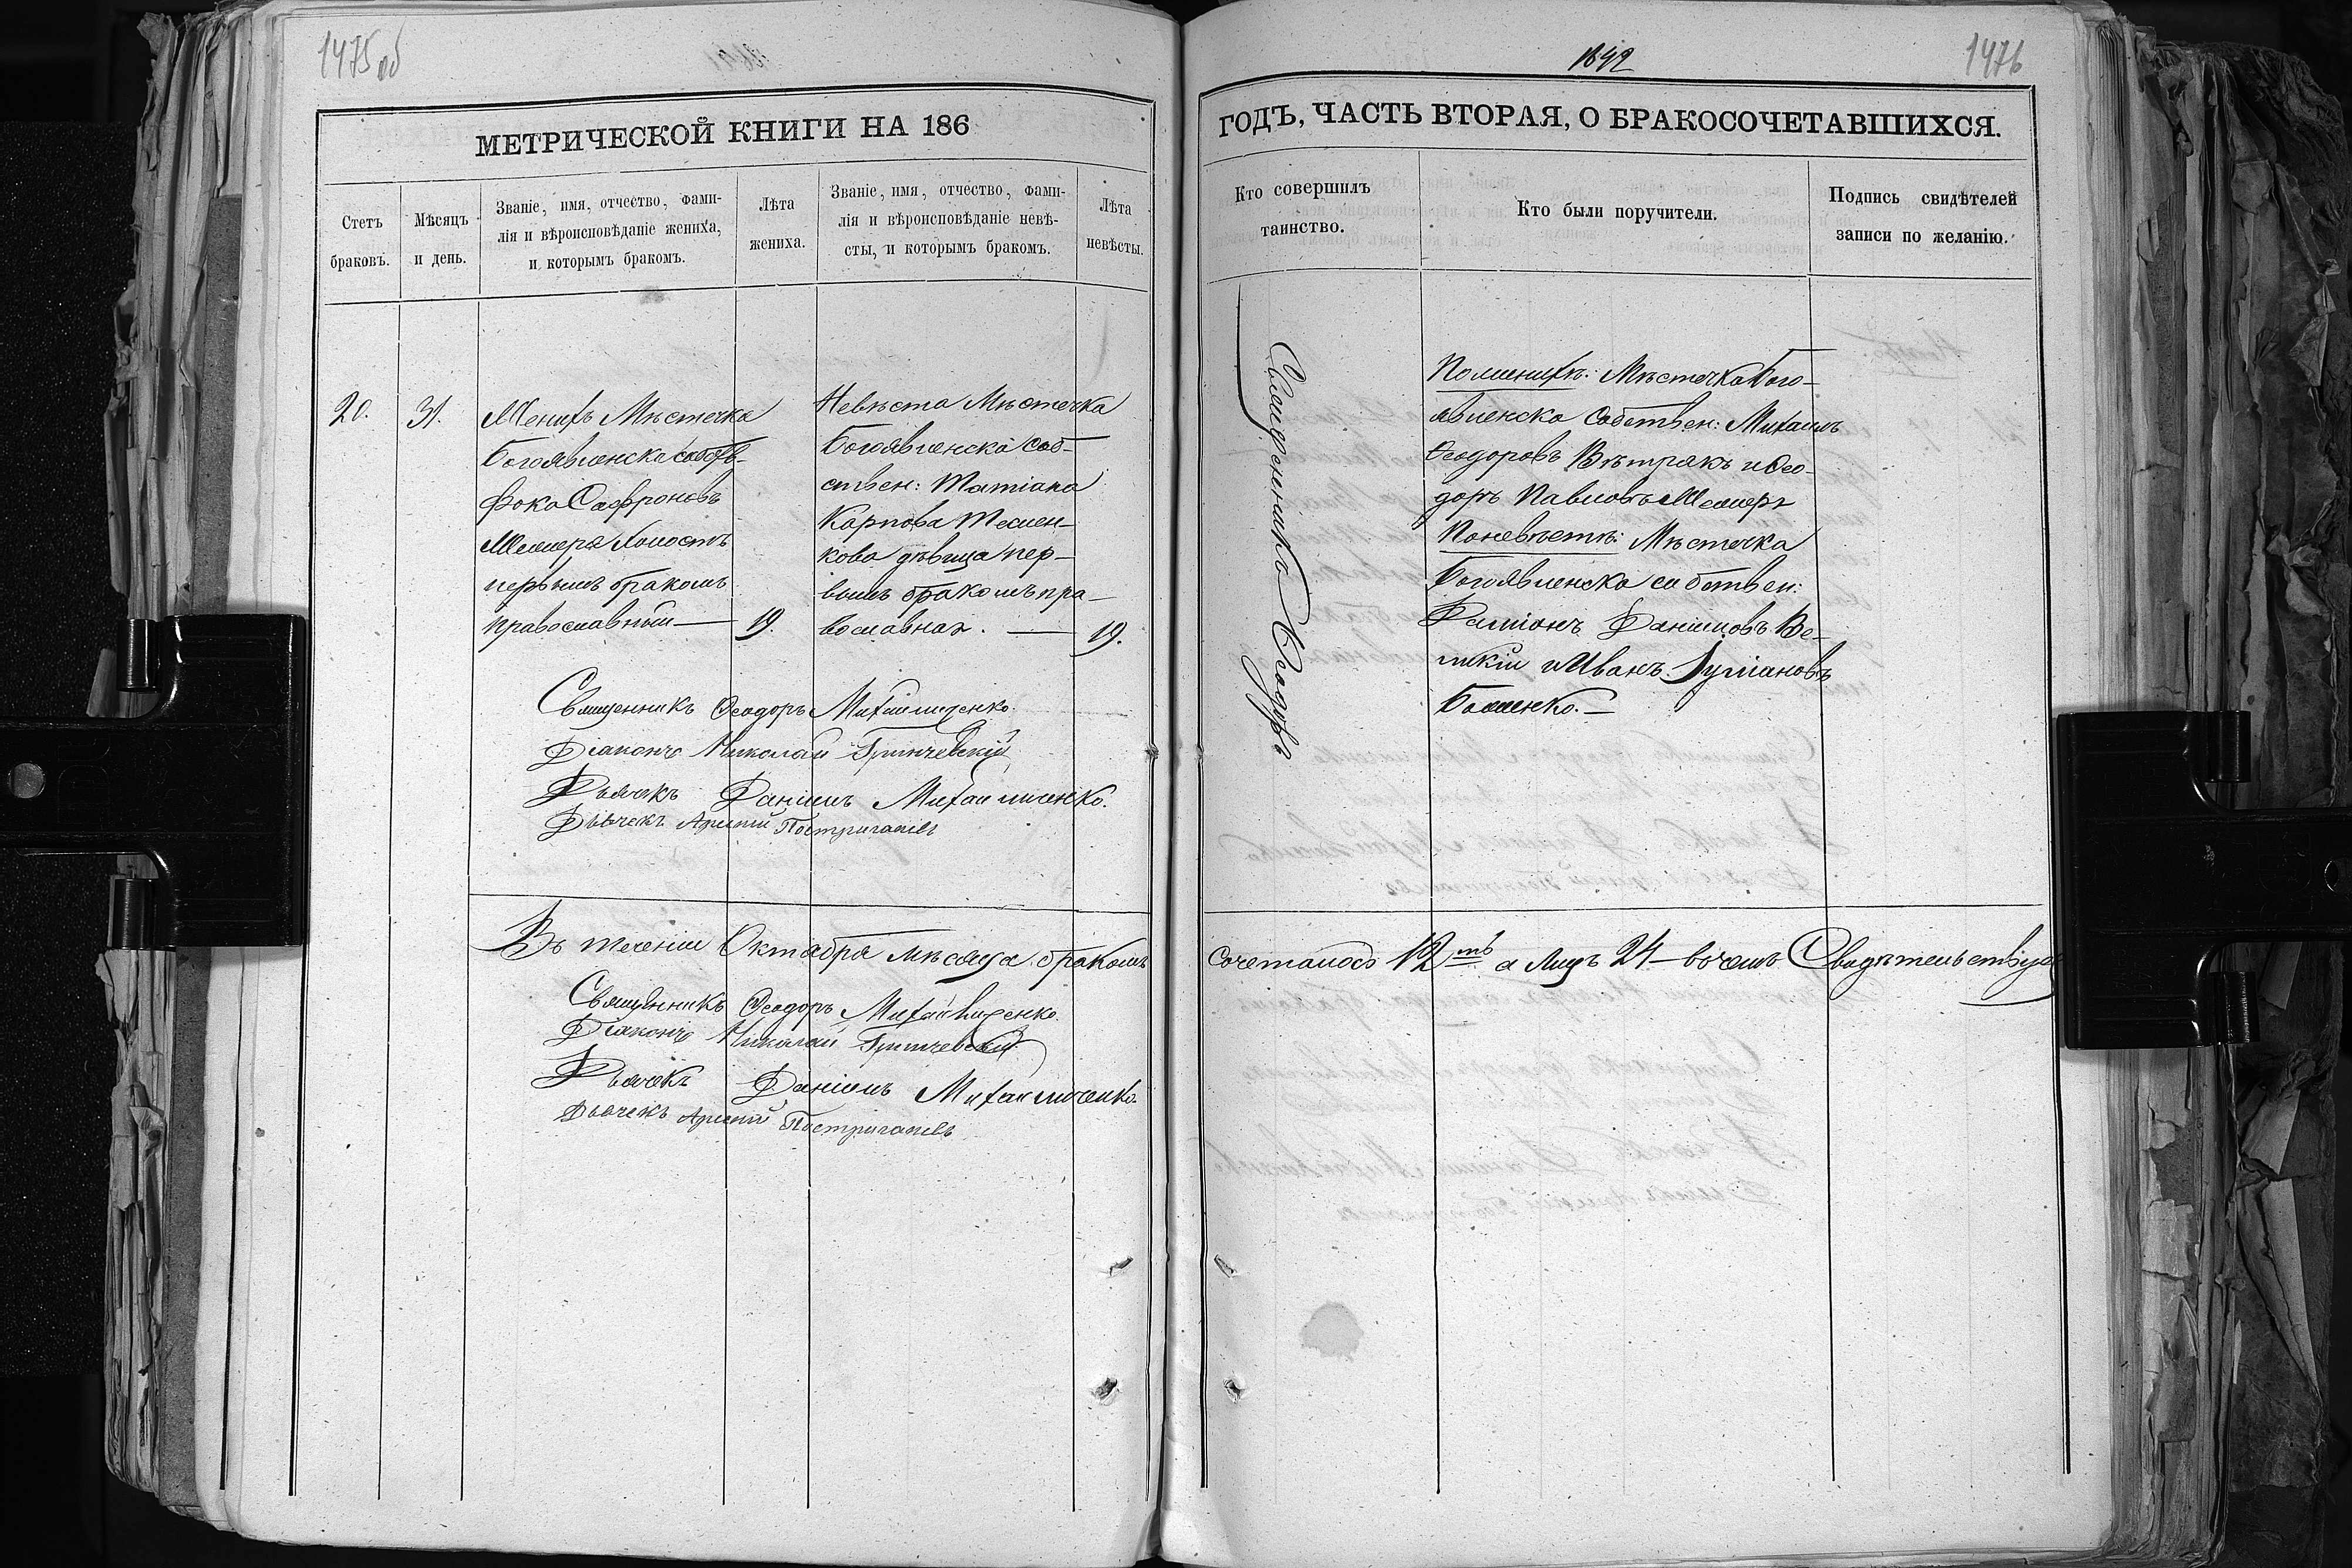 1475об
МЕТРИЧЕСКОЙ КНИГИ НА 186
Стетъ браковъ.
Мѣсяцъ и день.
Званіе, имя, отчество, фами-
лія и вѣроисповѣданіе жениха,
и которымъ бракомъ.
Лѣта
жениха.
Званіе, имя, отчество, фами-
лія и вѣроисповѣданіе невѣ-
сты, и которымъ бракомъ.
Лѣта
невѣсты.
20.
31.
Женихъ Мѣстечка
Богоявленска собств-
Фока Сафроновъ
холостъ
первымъ бракомъ
православный —
19.
Невѣста Мѣстечка
Богоявленска соб-
ствен: Татіана
Карпова
дѣвица пер-
вымъ бракомъ пра-
вославная. —
19.
Священникъ Ѳеодоръ Михайличенко.
Діаконъ Николай Гринчевскій
Дьячекъ Даніилъ Михайличенко.
Дьячекъ Арсеній Постригачевъ
Въ теченіи Октября мѣсяца бракомъ
Священникъ Ѳеодоръ Михайличенко.
Діаконъ Николай Гринчевскій
Дьячекъ Даніилъ Михайличенко.
Дьячекъ Арсеній Постригачевъ
1476
ГОДЪ, ЧАСТЬ ВТОРАЯ, О БРАКОСОЧЕТАВШИХСЯ.
Кто совершилъ
таинство.
Кто были поручители.
Подпись свидѣтелей
записи по желанію.
Священникъ Ѳеодоръ
По женихѣ: Мѣстечка Бого-
явленска собствен: Михаилъ
Ѳеодоровъ Вѣтрякъ и Ѳео-
доръ Павловъ
По невѣстѣ: Мѣстечка
Богоявленска собствен:
Даміанъ Даніиловъ Ве-
ликій и Иванъ
Боженко. —
сочеталось 12ть а лицъ 24 — въ чемъ Свидѣтельствуемъ